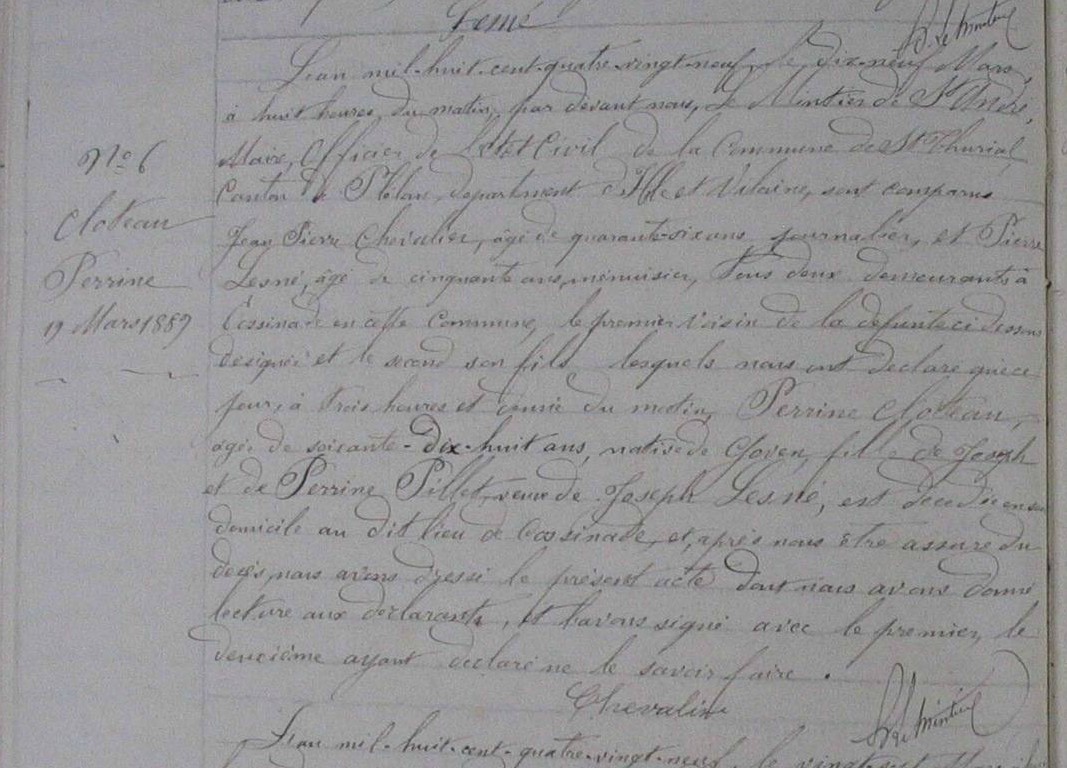 Lesné
Le Mintier
L'an mil-huit-cent-quatre-vingt-neuf, le dix-neuf Mars,
à huit heures du matin, par devant nous, Le Mintier de St André,
Maire, Officier de l'Etat Civil de la Commune de St Thurial,
Canton de Plélan, département d'Ille et Vilaine, sont comparus
Jean Pierre Chevalier, âgé de quarante-six ans, journalier, et Pierre
Lesné, âgé de cinquante ans, menuisier, tous deux demeurants à
Cossinade en cette Commune, le premier voisin de la défunte ci dessous
désignée et le second son fils, lesquels nous ont déclaré que ce
jour, à trois heures et demie du matin, Perrine Cloteau,
âgée de soixante-dix-huit ans, native de Goven, fille de Joseph
et de Perrine Pillet, veuve de Joseph Lesné, est décédée en son
domicile au dit lieu de Cossinade, et, après nous être assuré du
décès, nous avons dressé le présent acte dont nous avons donné
lecture aux déclarants, et l'avons signé avec le premier, le
deuxième ayant déclaré ne le savoir faire.
Chevalier
Le Mintier
L'an mil-huit-cent-quatre-vingt-neuf, le vingt
No 6
Cloteau
Perrine
19 Mars 1889